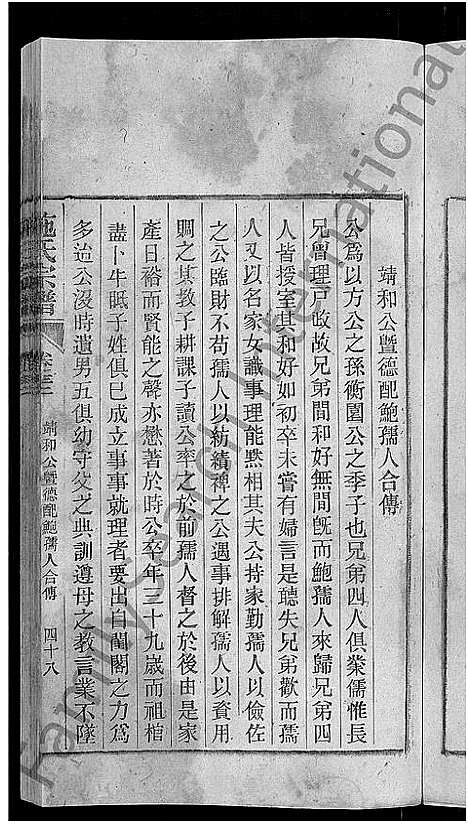 靖和公暨德配鮑孺人合傳
公爲以方公之孫衡園公之季子也兄弟四人俱業儒惟長
兄曾理戶政故兄弟間和好無間旣而鮑孺人來歸兄弟四
人皆授室其和好如初卒未嘗有婦言是聽失兄弟歡而孺
人又以名家女識事理能黙相其夫公持家勤孺人以儉佐
之公臨財不苟孺人以紡績裨之公遇事排解孺人以資用
賙之其敎子耕課子讀公率之於前孺人督之於後由是家
產日裕而賢能之聲亦懋著於時公卒年三十九歲而祖棺
盡卜牛眠子姓俱已成立事事就理者要出自閨閣之力爲
多迨公沒時遺男五俱幼守父之典訓遵母之教言業不墜
施氏宗譜
靖和公暨德配鮑孺人合傳
四十八
FamilySearch International